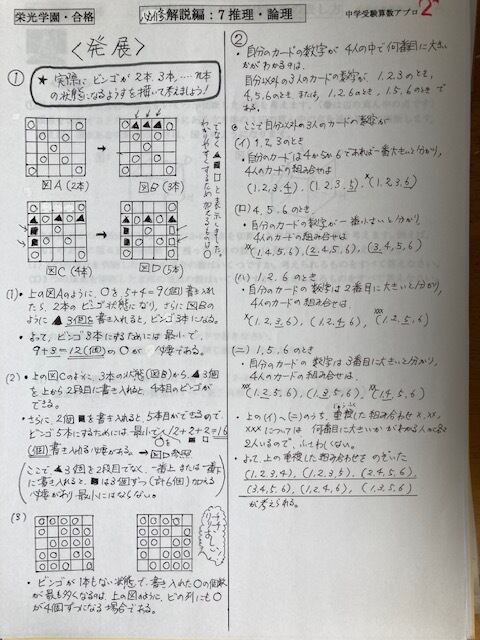 栄光学園・合格
必修解説編：7 推理・論理
中学受験算数アプロ
2
<発展>
①
★実際にビンゴが2本 3本,……n本
の状態になるようすを描いて考えましょう!
図A (2本)
図B (3本)
図C (4本)
図D (5本)
(1)・上の図Aのように、〇を5+4=9(個)書き入れ
たら、2本のビンゴ状態になり、さらに図Bの
ように▲3個を書き入れると、ビンゴ3本になる。
・よって、ビンゴ3本にするためには最小で、
9+3=12(個)の〇が必要である。
(2)・上の図Cのように、3本の状態(図B)から▲3個
を上から2段目に書き入れると、4本目のビンゴが
できる。
・さらに、2個■を書き入れると、5本目ができるので、
ビンゴ5本にするためには最小で、12+2+2=16
(個)書き入れる必要がある。→図D参照
ここで、▲3個を2段目でなく、一番上または一番下
に書き入れると、■は3個ずつ(計6個)加える
必要があり最小にはならない。
(3)
・ビンゴが1本もない状態で、書き入れた〇の個数
が最も多くなるのは、上の図のように、どの列にも〇
が4個ずつになる場合である。
②
・自分のカードの数字が4人の中で何番目に大きい
かがわかるのは、
自分以外の3人のカードの数字が、1,2,3のとき、
4,5,6のとき、または、1,2,6のとき、1,5,6のときで
ある。
◎ここで自分以外の3人のカードの数字が
(イ) 1,2,3のとき
・自分のカードは4か5か6であれば一番大きいと分かり、
4人のカードの組み合せは
(1,2,3,4), (1,2,3,5), ×(1,2,3,6)
(ロ) 4,5,6のとき
・自分のカードの数字が一番小さいと分かり、
4人のカードの組み合せは
××(1,4,5,6), (2,4,5,6), (3,4,5,6)
(ハ) 1,2,6のとき
・自分のカードの数字は2番目に大きいと分かり、
4人のカードの組み合せは
×(1,2,3,6), (1,2,4,6), ×××(1,2,5,6)
(ニ) 1,5,6のとき
・自分のカードの数字は3番目に大きいと分かり、
4人のカードの組み合せは
×××(1,2,5,6), (1,3,5,6), ××(1,4,5,6)
・上の(イ)〜(ニ)のうち、重複した組み合わせ×,××,
×××については何番目に大きいかがわかる人が
2人いるので、ふさわしくない。
・よって、上の重複した組み合わせをのぞいた
(1,2,3,4), (1,2,3,5), (2,4,5,6),
(3,4,5,6), (1,2,4,6), (1,3,5,6)
が考えられる。